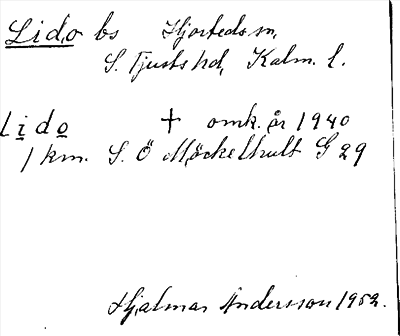 Lido bs Hjorteds sn,
S. Tjusts hd, Kalm. l.
Lido † omk. år 1940
1 km. S. Ö Möckelhult G 29
Hjalmar Andersson 1952.